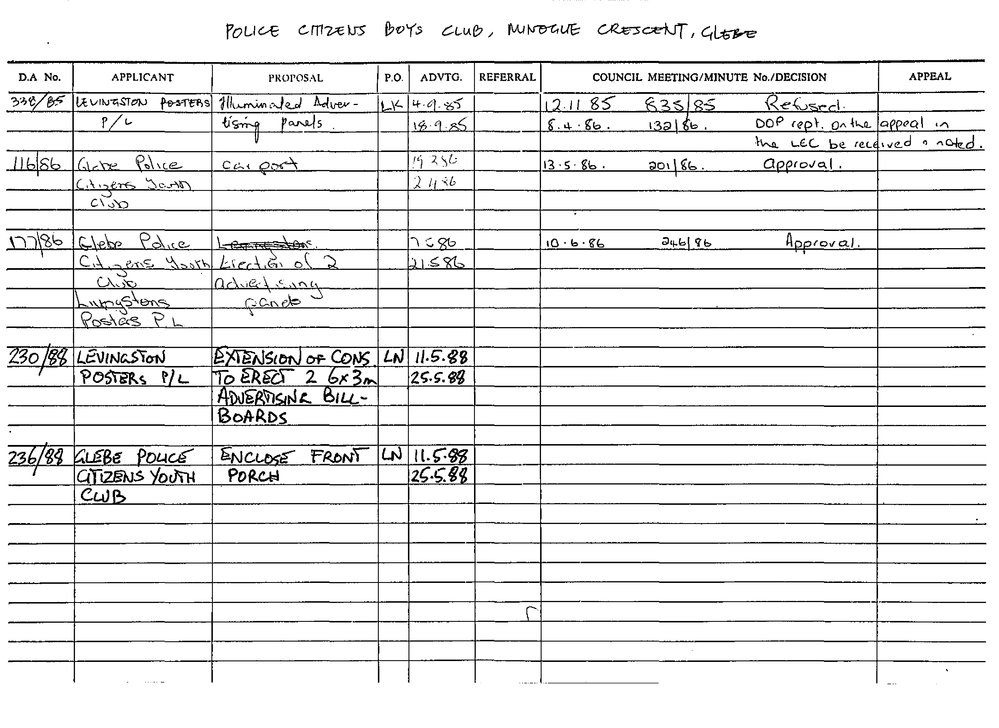 POLICE CITIZENS BOYS CLUB, MINOGUE CRESCENT, GLEBE
D.A No. APPLICANT PROPOSAL P.O. ADVTG. REFERRAL COUNCIL MEETING/MINUTE No./DECISION APPEAL
338/85 LEVINGSTON POSTERS Illuminated Adver- LK 4.9.85 12.11 85 835/85 Refused.
P/L tising panels. 18.9.85 8.4.86. 132/86. DOP rept. on the appeal in
the LEC be received & noted.
116/86 Glebe Police Car port 19 3 86 13.5.86. 201/86. Approval.
Citizens Youth 2 4 86
Club
177/86 Glebe Police 7 5 86 10.6.86 246/86 Approval.
Citizens Youth Erection of 2 21 5 86
Club advertising
Livingstons panels
Posters P.L
230/88 LEVINGSTON EXTENSION OF CONS LN 11.5.88
POSTERS P/L TO ERECT 2 6x3m 25.5.88
ADVERTISING BILL-
BOARDS
236/88 GLEBE POLICE ENCLOSE FRONT LN 11.5.88
CITIZENS YOUTH PORCH 25.5.88
CLUB